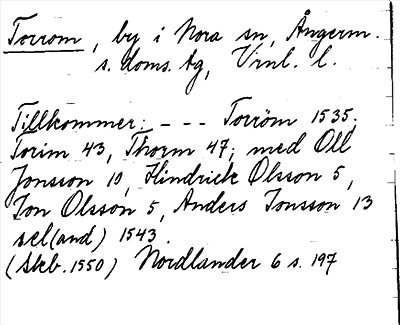 Torrom, by i Nora sn, Ångerm.
s. doms. tg, Vrnl. l.
Tillkommer: - - - Torröm 1535,
Torim 43, Thorm 47; med Oll
Jonsson 10, Hindrick Olsson 5,
Jon Olsson 5, Anders Jonsson 13
sel(and) 1543.
(Skb. 1550) Nordlander 6 s. 197